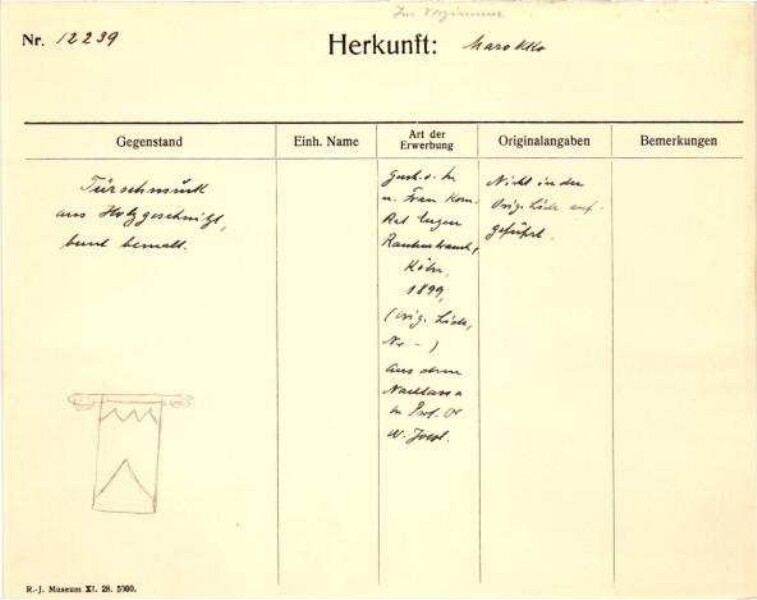 Nr. 12239
Herkunft: Marokko
Gegenstand
Einh. Name
Art der Erwerbung
Originalangaben
Bemerkungen
Türschmuck
aus Holz geschnitzt,
bunt bemalt.
Gesch. v. H.
u. Frau Kom.
Rat Eugen
Rautenstrauch,
Köln,
1899,
(Orig. Liste,
Nr –)
Aus dem
Nachlass
Prof. Dr
W. Joest.
Nicht in der
Orig. Liste auf-
geführt.
R.-J. Museum XI. 28. 5000.